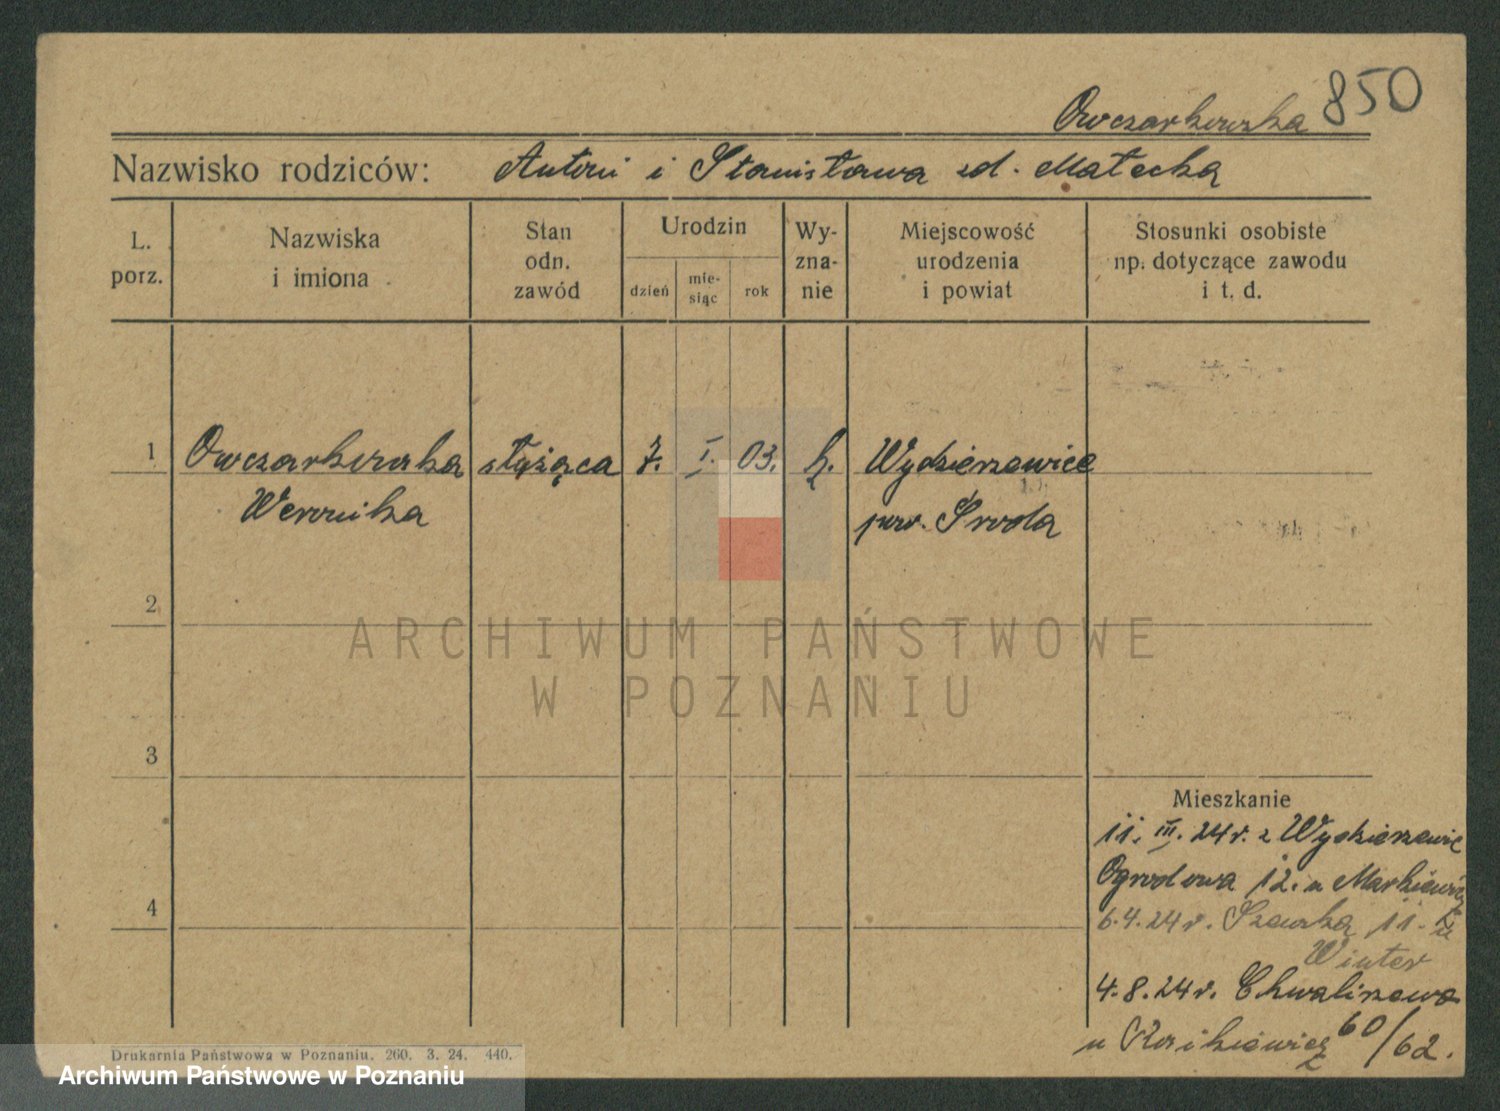 850
Owczarkowska
Nazwisko rodziców: Antoni i Stanisława zd. Małecka
L. porz.
Nazwiska i imiona
Stan odn. zawód
Urodzin
dzień
mie- siąc
rok
Wy- zna- nie
Miejscowość urodzenia i powiat
Stosunki osobiste np. dotyczące zawodu i t. d.
1 Owczarkowska służąca 7. I. 03. k. Wydzierzewice
Weronika pow. Środa
2
ARCHIWUM PAŃSTWOWE
W POZNANIU
3
Mieszkanie
11. III. 24 r. z Wydzierzewic
Ogrodowa 12. u Markiewicz
4
6.4.24 r. Szewska 11. u
Winter
4.8.24 r. Chwaliszewo
60/62.
u
Drukarnia Państwowa w Poznaniu. 260. 3. 24. 440.
Archiwum Państwowe w Poznaniu